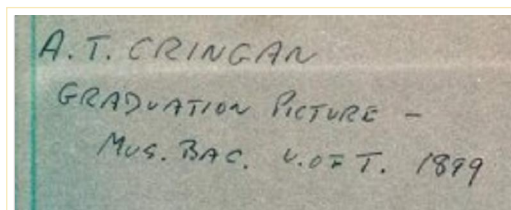 A. T. CRINGAN
GRADUATION PICTURE -
MUS. BAC. U. OF T. 1899